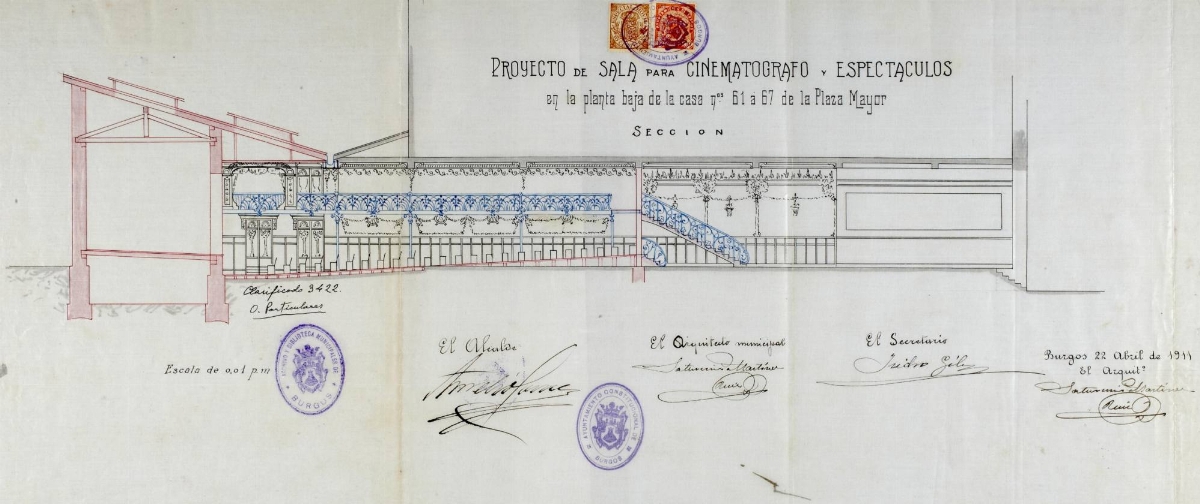 PROYECTO DE SALA PARA CINEMATOGRAFO Y ESPECTACULOS
en la planta baja de la casa nos 61 a 67 de la Plaza Mayor
SECCION
Clasificado 3422.
O. Particulares
Escala de 0,01 p m
ARCHIVO Y BIBLIOTECA MUNICIPALES DE BURGOS
El Alcalde
AYUNTAMIENTO CONSTITUCIONAL DE BURGOS
El Arquitecto municipal
Saturnino Martínez
Ruiz
El Secretario
Isidro Gil
Burgos 22 Abril de 1911
El Arquito
Saturnino Martínez
Ruiz